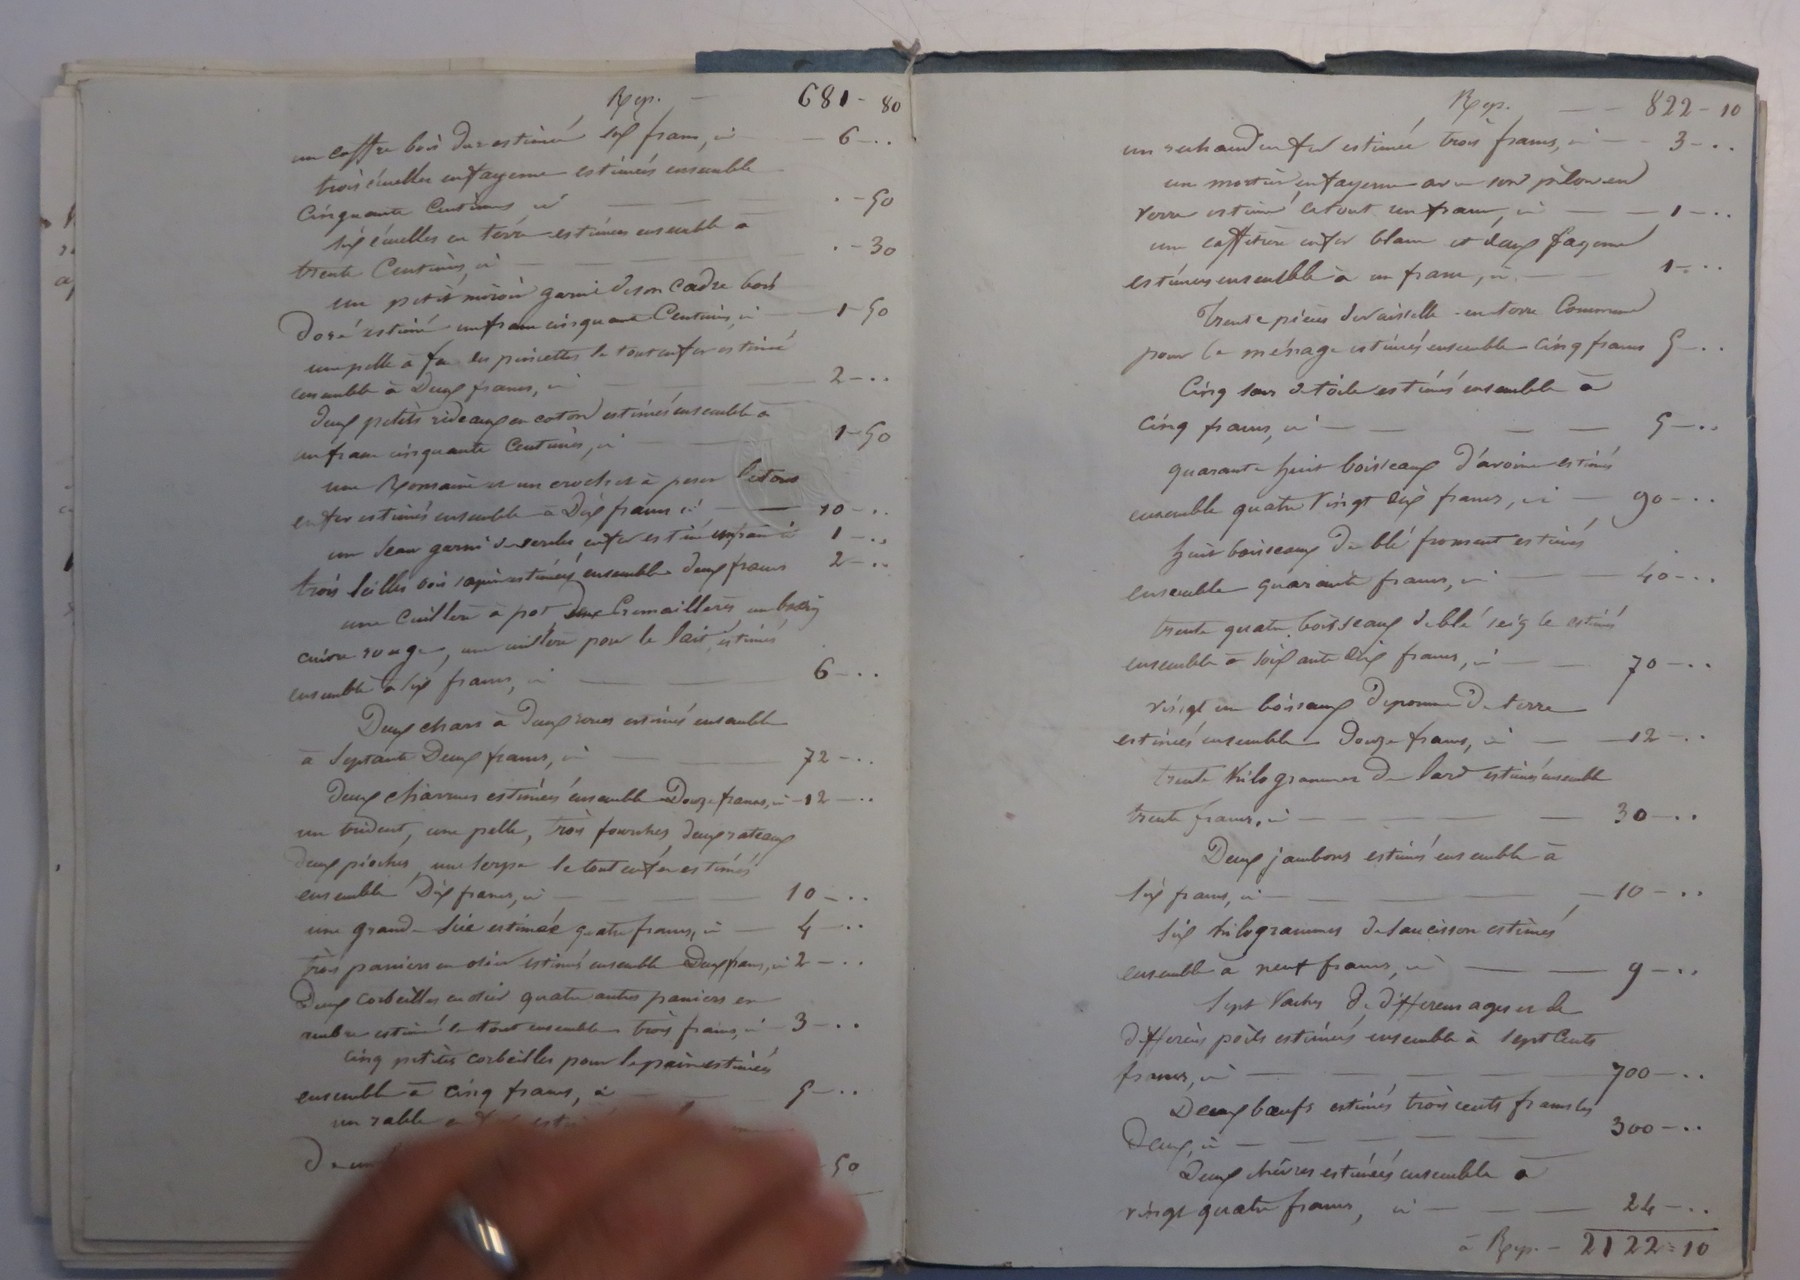 Rep. — 681 - 80
un coffre bois dur estimé six francs, ci — 6 - ..
trois écuelles en fayence estimées ensemble
cinquante Centimes ci — . - 50
six écuelles en terre estimées ensemble a
trente Centimes, ci — . - 30
un petit miroir garni de son cadre bois
Doré estimé un franc cinquante Centimes, ci — 1 - 50
une pelle à feu les pincettes le tout en fer estimé
ensemble à Deux francs, ci — 2 - ..
deux petits rideaux en coton estimés ensemble à
un franc cinquante Centimes, ci — 1 - 50
une Romaine et un crochet à peser le tout
en fer estimés ensemble à Dix francs ci — 10 - ..
un seau garni de cercles en fer estimé un franc ci 1 - ..
trois seilles bois sapin estimées ensemble deux francs 2 - ..
une cuillère à pot Deux Cremaillères un bassin
cuivre rouge, une cuillère pour le lait, estimés
ensemble à six francs, ci — 6 - ..
Deux chars à Deux roues estimés ensemble
à Septante Deux francs, ci — 72 - ..
Deux charrues estimées ensemble à Douze francs, ci - 12 - ..
un trident, une pelle, trois fourches, deux rateaux
Deux pioches, une serpe le tout en fer estimés
ensemble Dix francs, ci — 10 - ..
une grande Scie estimée quatre francs, ci — 4 - ..
trois paniers en osier estimés ensemble Deux francs, ci 2 - ..
Deux corbeilles en osier quatre autres paniers en
estimé le tout ensemble trois francs, ci - 3 - ..
Cinq petites corbeilles pour le pain estimées
ensemble à cinq francs, ci — 5 - ..
un rable
50
Rep. — — 822 - 10
un rechaud en fer estimé trois francs, ci — 3 - ..
un mortier en fayence avec son pilon en
verre estimé le tout un franc, ci — 1 - ..
une caffetière en fer blanc et deux fayence
estimées ensemble à un franc, ci. — 1 - ..
Trente pièces de vaisselle en terre Commune
pour le ménage estimés ensemble cinq francs 5 - ..
Cinq sacs de toile estimés ensemble à
cinq francs, ci — 5 - ..
quarante huit boisseaux d'avoine estimés
ensemble quatre vingt dix francs, ci — 90 - ..
huit boisseaux de blé froment estimés
ensemble quarante francs, ci — 40 - ..
trente quatre boisseaux de blé seigle estimés
ensemble à soixante dix francs, ci — 70 - ..
vingt un boisseaux de pomme De terre
estimés ensemble Douze francs, ci — 12 - ..
trente kilogrammes de lard estimés ensemble
trente francs, ci — 30 - ..
Deux jambons estimés ensemble à
dix francs, ci — 10 - ..
Six kilogrammes de saucisson estimés
ensemble à neuf francs, ci — 9 - ..
Sept Vaches de différens ages et de
différens poils estimées ensemble à sept Cents
francs, ci — 700 - ..
Deux bœufs estimés trois cents francs les
Deux, ci — 300 - ..
Deux chèvres estimées ensemble à
vingt quatre francs, ci — 24 - ..
à Rep. - 2122 = 10